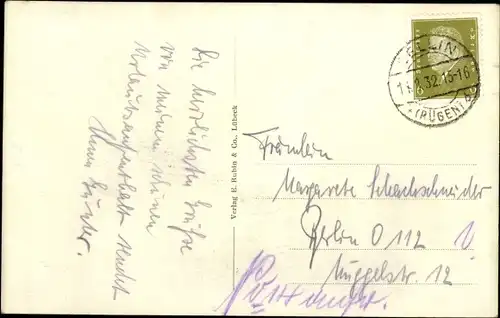 Die herzlichsten Grüße
von meinem schönen
Urlaubsaufenthalt sendet
Verlag E. Rubin & Co., Lübeck
SELLIN
32.15-16
(RÜGEN)
Fräulein
Margarete Schachschneider
Berlin O 112
Müggelstr. 12